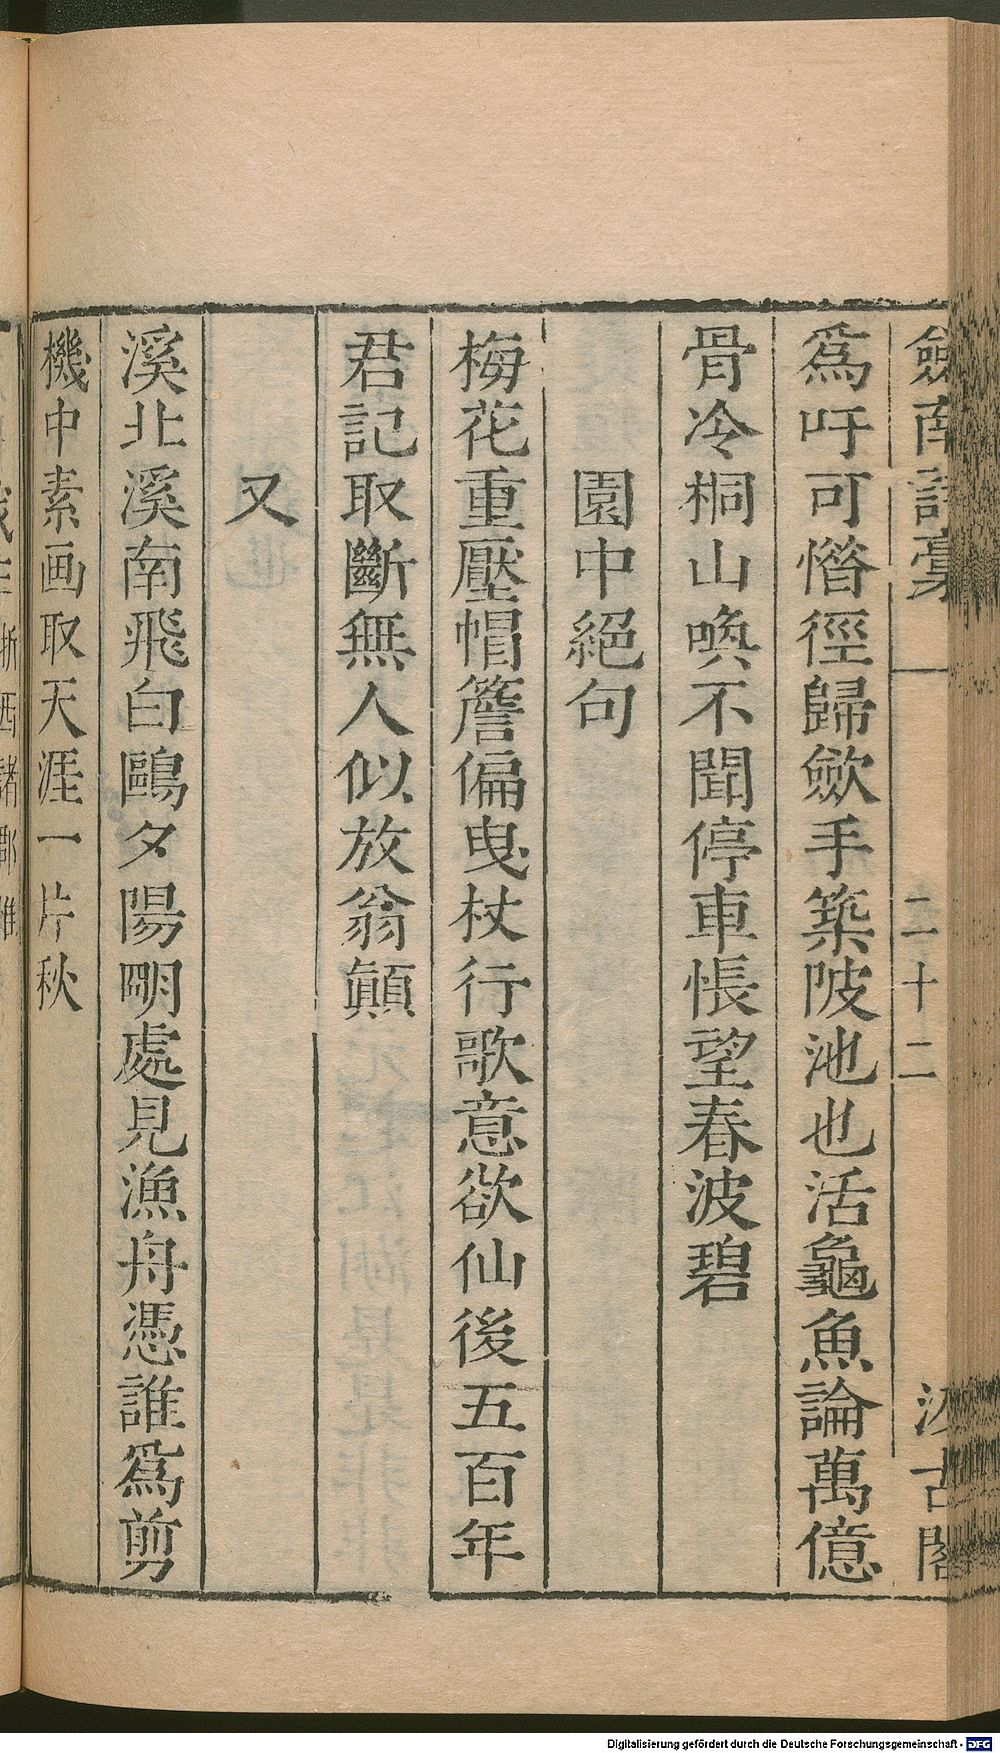 劒南詩藁
二十二
汲古閣
爲吁可憯徑歸歛手築陂池也活龜魚論萬億
骨冷桐山喚不聞停車悵望春波碧
園中絕句
梅花重壓帽簷偏曳杖行歌意欲仙後五百年
君記取斷無人似放翁顛
又
溪北溪南飛白鷗夕陽明處見漁舟憑誰爲剪
機中素画取天涯一片秋
Digitalisierung gefördert durch die Deutsche Forschungsgemeinschaft - DFG